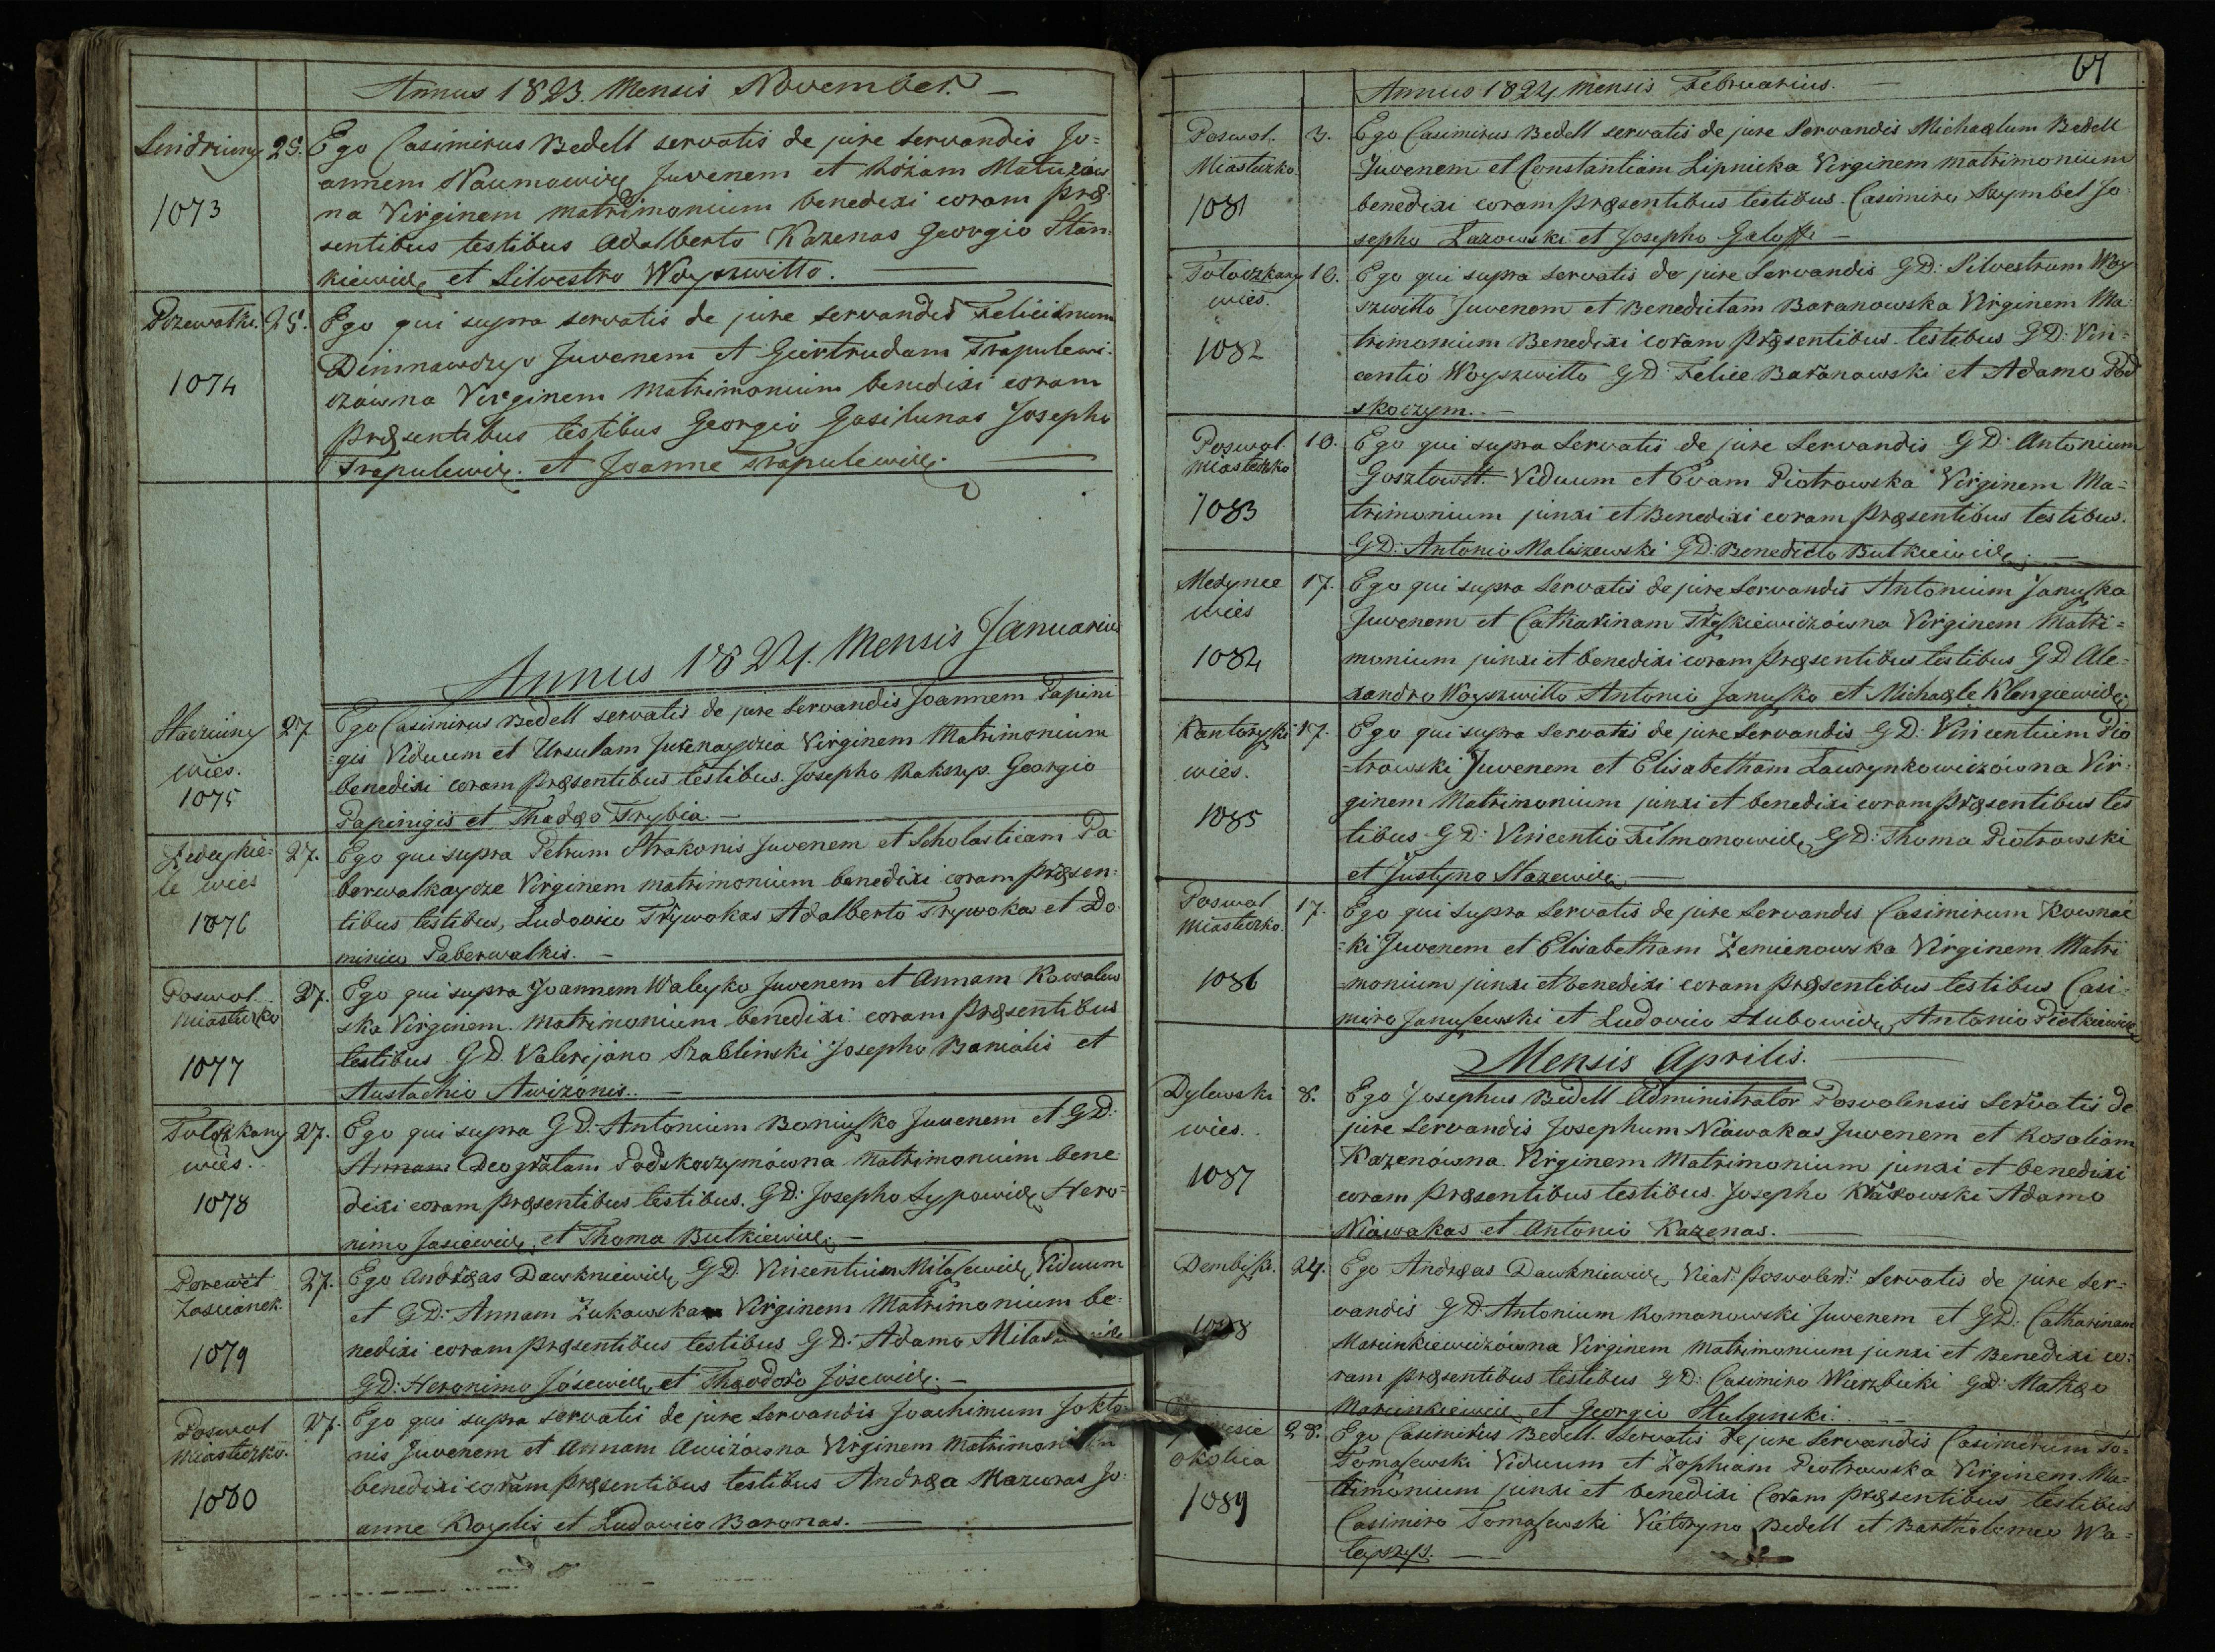 Annus 1823. Mensis November. —
Sindriuny 25. Ego Casimirus Bedell servatis de jure servandis Jo=
annem Naumowicz Juvenem et Rózam Matuzów
1073 na Virginem matrimonium benedixi coram præ-
sentibus testibus Adalberto Kazenas Georgio Stan-
kiewicz et Silvestro Woyszwitto. —
25. Ego qui supra servatis de jure servandis Felicianum
Juvenem et Giertrudam Trapulewi-
1074 czówna Virginem matrimonium benedixi coram
præsentibus testibus Georgio Gasilunas Josepho
Trapulewicz. et Joanne Trapulewicz.
Annus 1824. Mensis Januarius
27 Ego Casimirus Bedell servatis de jure servandis Joannem Papini
wies. =gis Viduum et Ursulam Virginem Matrimonium
benedixi coram præsentibus testibus. Josepho Rakszys. Georgio
1075
Papinigis et Thadæo Trybia. —
27. Ego qui supra Petrum Strakonis Juvenem et Scholasticam Pa-
le wies berwalkaycze Virginem matrimonium benedixi coram præsen=
1076 tibus testibus, Ludovico Trywokas Adalberto Trywokas et Do-
minico Paberwalkis. —
Poswol 27. Ego qui supra Joannem Waleyko Juvenem et Annam Kowalew
Miasteczko ska Virginem. Matrimonium benedixi coram præsentibus
1077 testibus GD. Valerjano Szablinski Josepho Banialis et
Austachio Awizonis.. —
Toloczkany 27. Ego qui supra GD. Antonium Boniuszko Juvenem et GD:
wies.. Annam Deogratam Podskoczymówna Matrimonium bene
1078 dixi coram præsentibus testibus. GD: Josepho Lypowicz Hero=
nimo Jasiewicz. et Thoma Butkiewicz. —
Porewet 27. Ego Andræas Dawkniewicz GD. Vincentium Milaszewicz Viduum
Zascianek. et GD: Annam Zukowska Virginem Matrimonium be-
1079 nedixi coram præsentibus testibus GD: Adamo
GD: Heronimo Jósewicz et Thæodoro Jósewicz. —
Poswol 27. Ego qui supra servatis de jure servandis Joachimum Jokto-
Miasteczko. nis Juvenem et Annam Awizówna Virginem Matrimonium
1080 benedixi coram præsentibus testibus Andræa Mazuras Jo-
anne Koydis et Ludovico Baronas. —
67
Annus 1824 Mensis Februarius. —
Poswol. 3. Ego Casimirus Bedell servatis de jure servandis Michaelum Bedell
Miasteczko Juvenem et Constantiam Lipnicka Virginem matrimonium
1081 benedixi coram præsentibus testibus. Casimiro Szymbel Jo-
sepho Lazowski et Josepho —
Toloczkany 10. Ego qui supra servatis de jure servandis GD: Silvestrum Woy
wies. szwitto Juvenem et Benedictam Baranowska Virginem Ma-
1082 trimonium Benedixi coram præsentibus testibus GD: Vin=
centio Woyszwitto GD: Felice Baranowski et Adamo Pod
skoczym.. —
Poswol 10. Ego qui supra servatis de jure servandis GD: Antonium
Miasteczko Gosztowtt. Viduum et Evam Piotrowska Virginem Ma=
1083 trimonium junxi et Benedixi coram præsentibus testibus.
GD: Antonio Maliszewski GD: Benedicto Butkiewicz. —
Medynce 17. Ego qui supra servatis de jure servandis Antonium Januszko
wies Juvenem et Catharinam Tryszkiewiczówna Virginem Matri=
1084 monium junxi et benedixi coram præsentibus testibus GD Ale=
xandro Woyszwitto Antonio Januszko et Michaele Klengiewicz
17. Ego qui supra servatis de jure servandis GD: Vincentium Pio
wies. =trowski Juvenem et Elisabetham Lawrynkowiczówna Vir-
1085 ginem Matrimonium junxi et benedixi coram præsentibus tes
tibus GD: Vincentio Filmonowicz GD: Thoma Piotrowski
et Justyno Stazewicz. —
Poswol 17. Ego qui supra servatis de jure servandis Casimirum Kownac
Miasteczko. =ki Juvenem et Elisabetham Zemienowska Virginem Matri
1086 =monium junxi et benedixi coram præsentibus testibus Casi-
miro Januszewski et Ludovico Antonio Pietkiewicz
Mensis Aprilis. —
Dylewski 8. Ego Josephus Bedell Administrator Poswolensis servatis de
wies.. jure servandis Josephum Niawakas Juvenem et Rosaliam
1087 Kazenówna Virginem Matrimonium junxi et benedixi
coram præsentibus testibus. Josepho Adamo
Niawakas et Antonio Kazenas.
24. Ego Andræas Dawkniewicz, Vicar: poswolen: servatis de jure ser-
vandis GD: Antonium Romanowski Juvenem et GD: Catharinam
Marcinkiewiczówna Virginem matrimonium junxi et Benedixi co-
ram præsentibus testibus GD: Casimiro Wierzbicki GD: Mathæo
Marcinkiewicz et Georgio Stulginski. —
28. Ego Casimirus Bedell. servatis de jure servandis Casimirum To-
okolica Tomaszewski Viduum et Zophiam Piotrowska Virginem Ma-
1089 trimonium junxi et benedixi Coram præsentibus testibus
Casimiro Tomaszewski Victoryno Bedell et Bartholomeo Wa=
leyszys. —